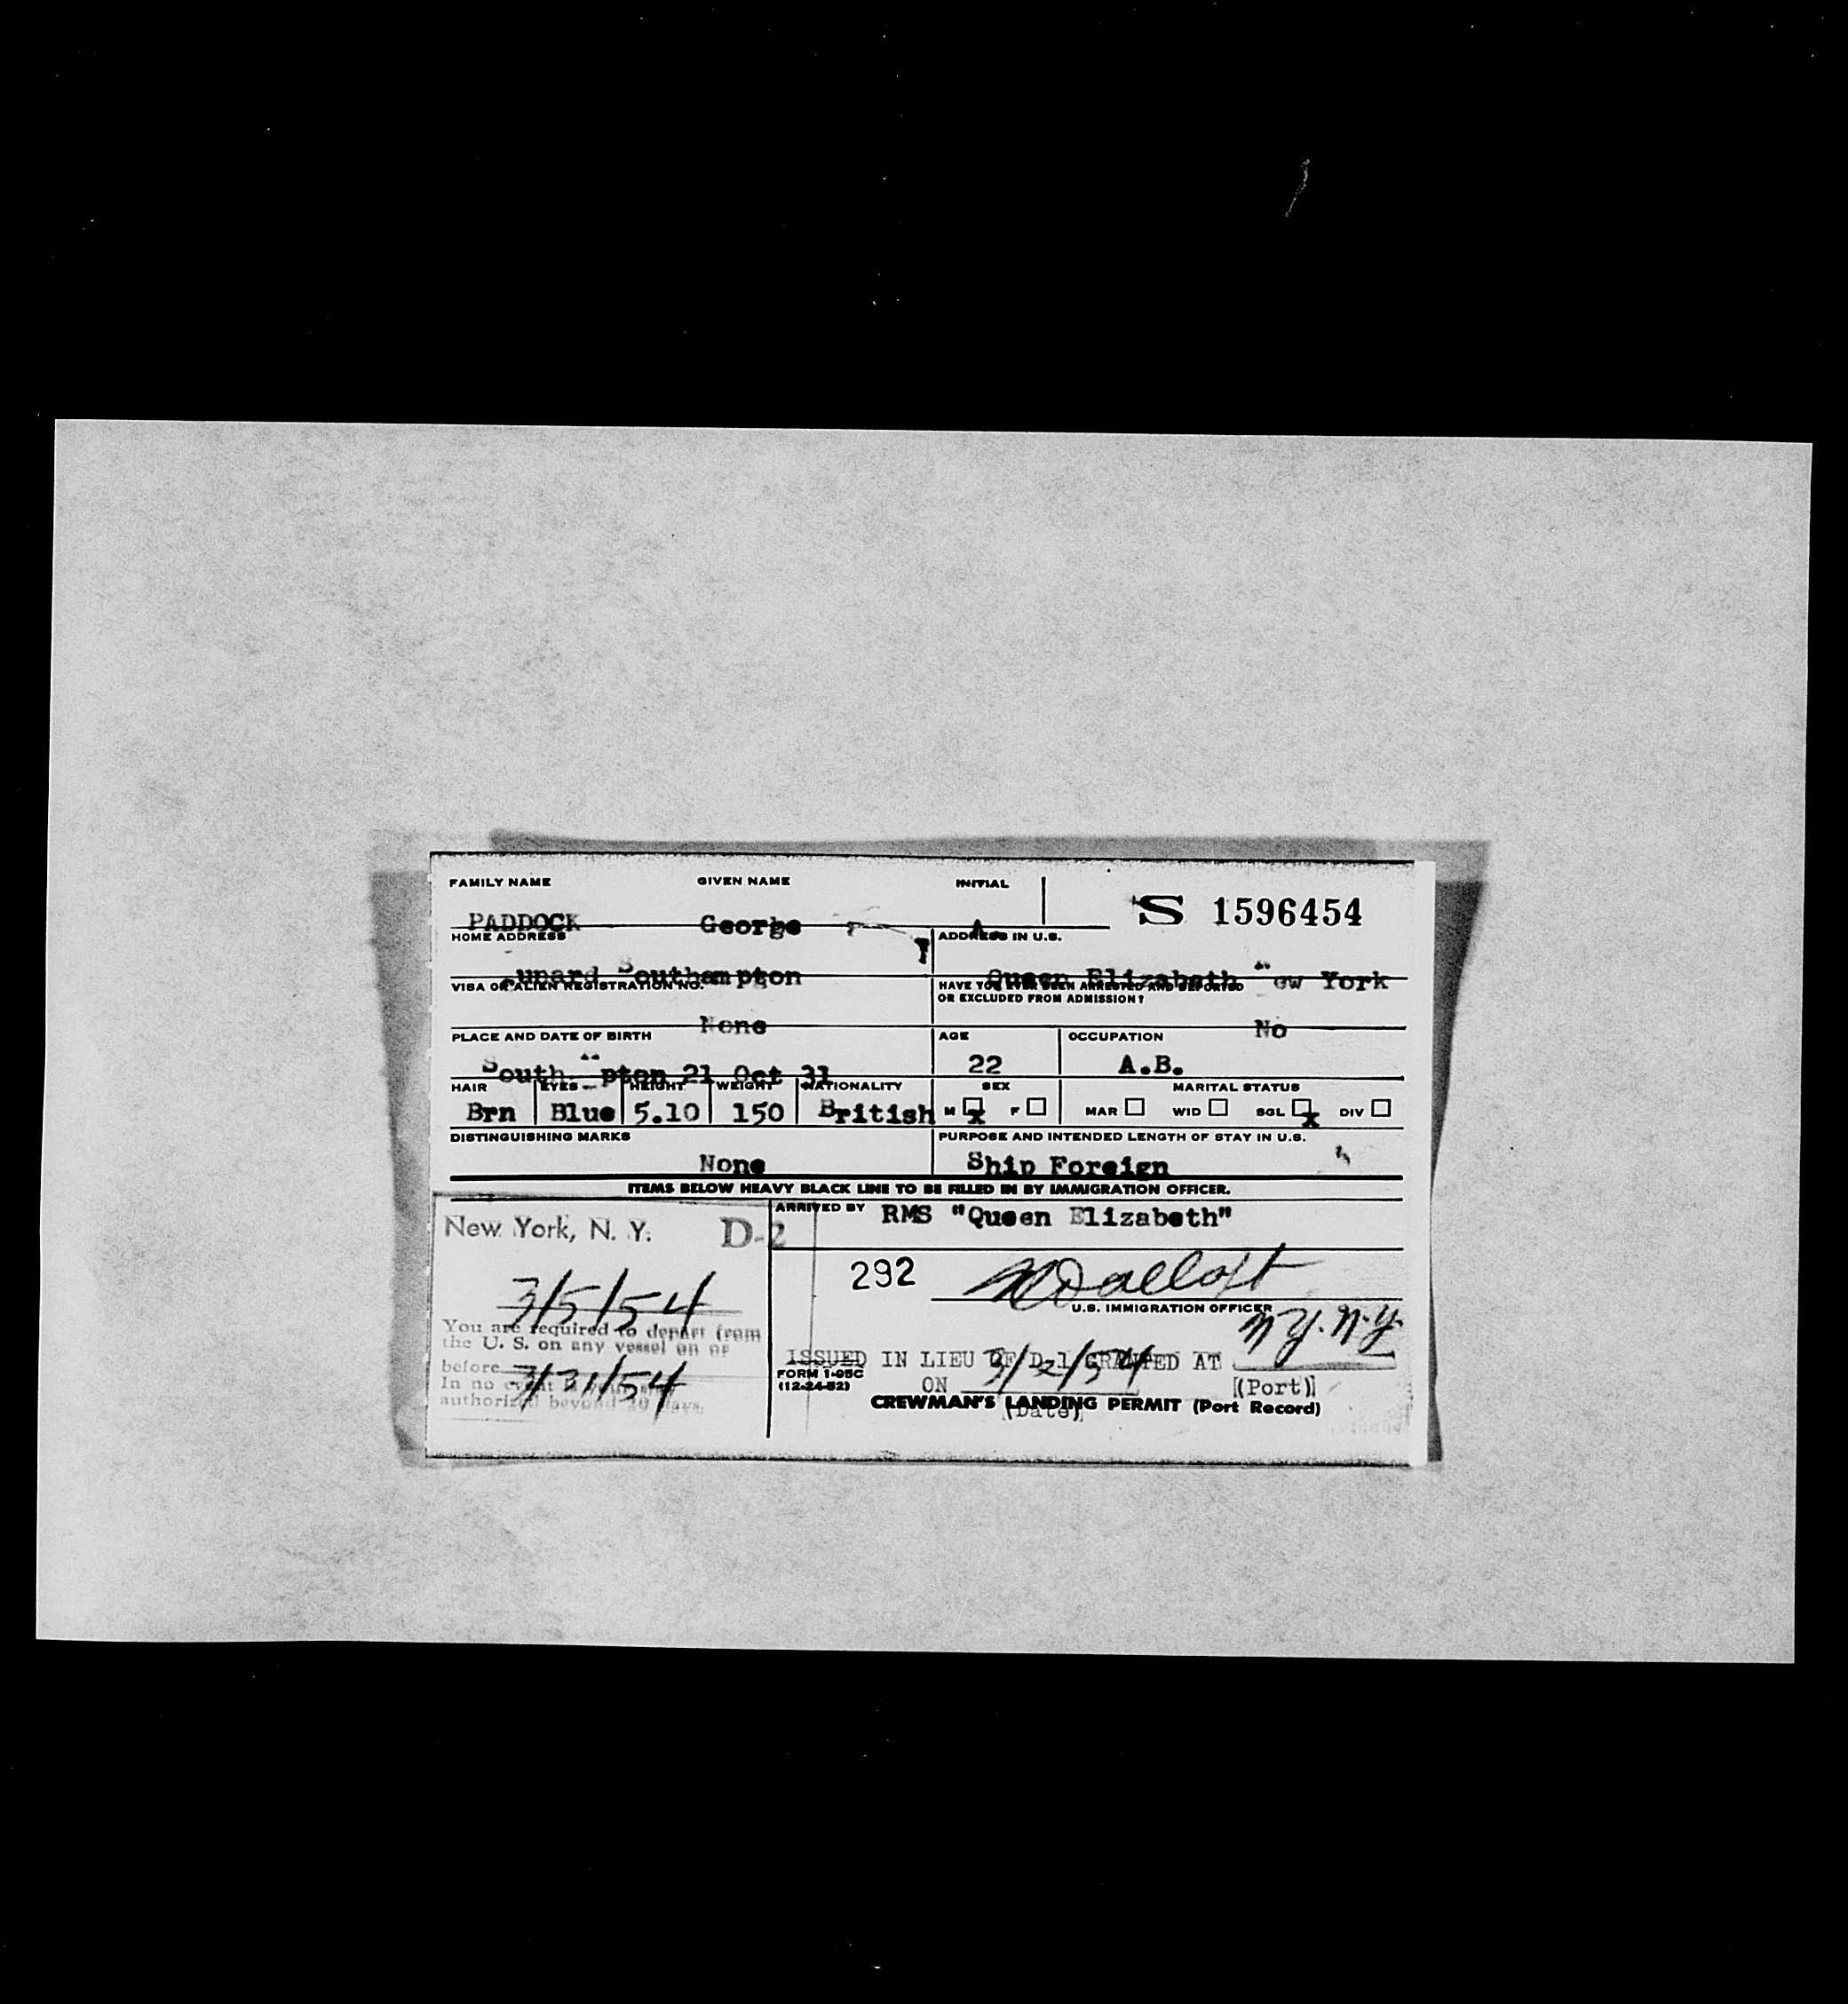 FAMILY NAME GIVEN NAME INITIAL
S 1596454
PADDOCK George A
HOME ADDRESS ADDRESS IN U.S.
unard Southampton Queen Elizabeth New York
VISA OR ALIEN REGISTRATION NO. HAVE YOU EVER BEEN ARRESTED AND DEPORTED
OR EXCLUDED FROM ADMISSION?
None No
PLACE AND DATE OF BIRTH AGE OCCUPATION
Southampton 21 Oct 31 22 A.B.
HAIR EYES HEIGHT WEIGHT NATIONALITY SEX MARITAL STATUS
Brn Blue 5.10 150 British M x F MAR WID SGL x DIV
DISTINGUISHING MARKS PURPOSE AND INTENDED LENGTH OF STAY IN U.S.
None Ship Foreign
ITEMS BELOW HEAVY BLACK LINE TO BE FILLED IN BY IMMIGRATION OFFICER.
New York, N. Y. D-2
3/5/54
You are required to depart from
the U. S. on any vessel on or
before 3/31/54
In no event
authorized beyond days.
ARRIVED BY RMS "Queen Elizabeth"
292
U.S. IMMIGRATION OFFICER
N.Y. N.Y.
ISSUED IN LIEU OF D-1 GRANTED AT
FORM I-95C
(12-24-52)
ON 3/2/54 (Port)
CREWMAN'S LANDING PERMIT (Port Record)
(Date)